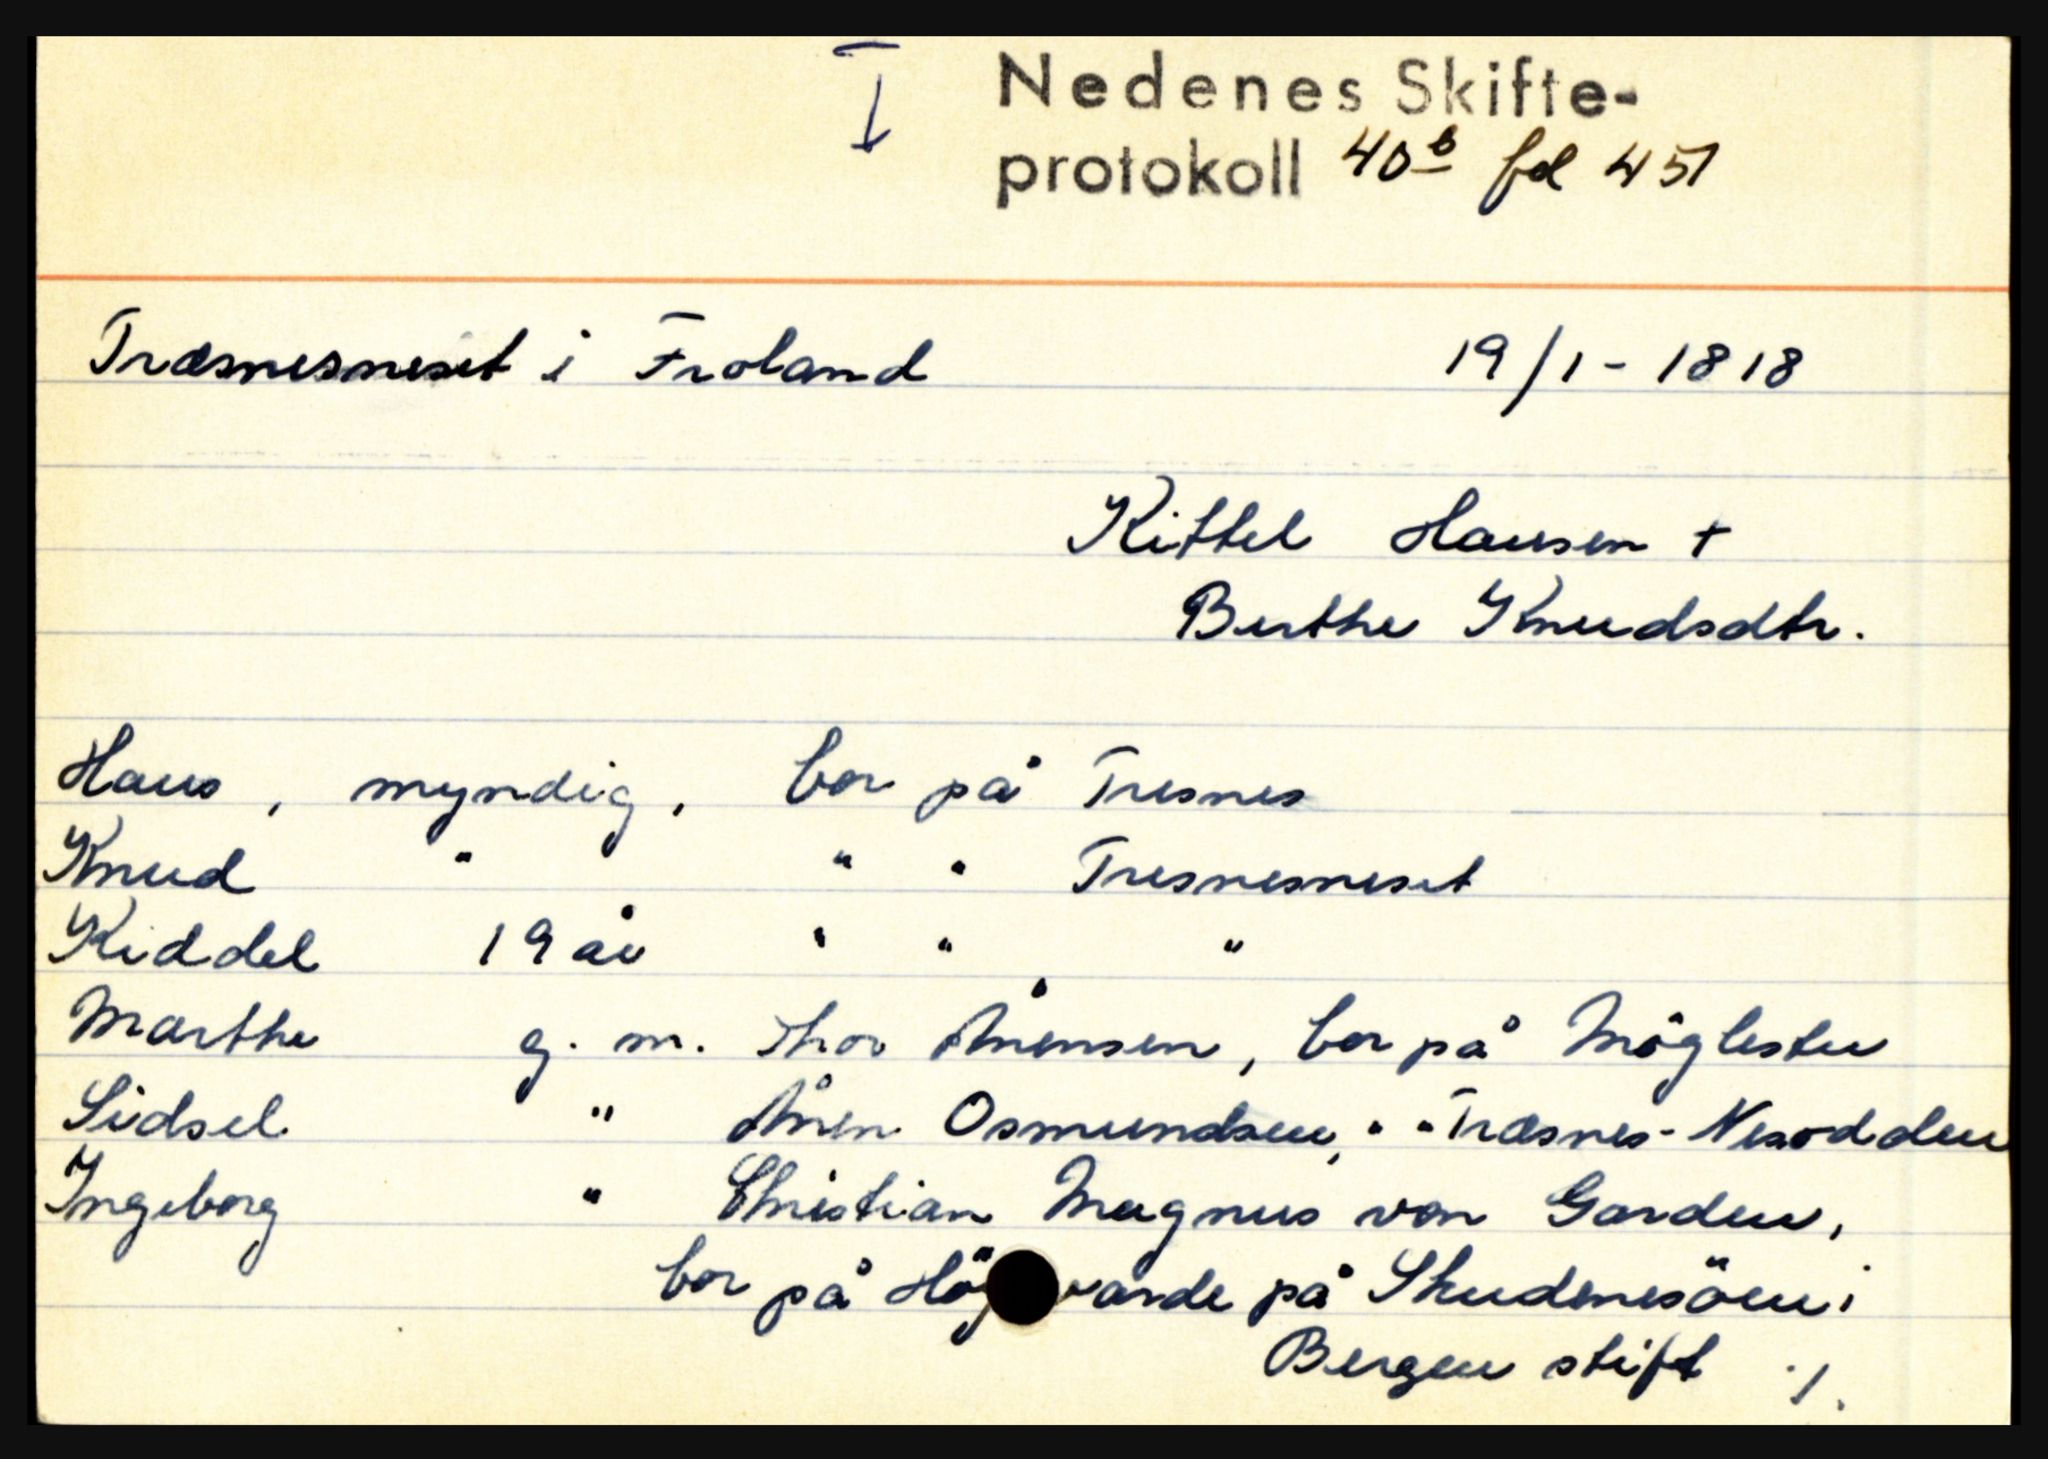 T
↓
Nedenes Skifte-
protokoll 40b fol 451
Træsnesneset i Froland 19/1 - 1818
Kittel Hansen +
Berthe Knudsdtr.
Hans, myndig, bor på Tresnes
Knud " " " Tresnesneset
Kiddel 19 år " " "
Marthe g. m. Thor Ånensen, bor på Möglestu
Sidsel " Ånen Osmundsen, " " Træsnes-Nesodden
Ingeborg " Christian Magnus von Garden,
bor på Högevarde på Skudenesöen i
Bergen stift ./.